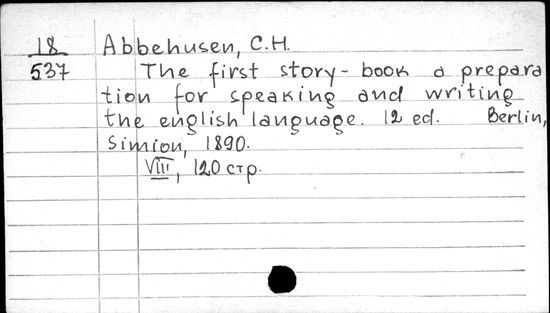 18 Abbehusen, C.H.
537 The first story-book a prepara
tion for speaking and writing
the english language. 12 ed. Berlin,
Simion, 1890.
VIII, 120 стр.